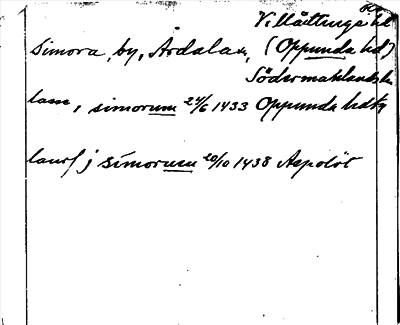 Villåttinge hd
Simora, by, Årdala sn, (Oppunda hd)
Södermanlands l.
lasse, simorum 24/6 1433 Oppunda hdtg
laurſ j simorum 20/10 1438 Aspolöt